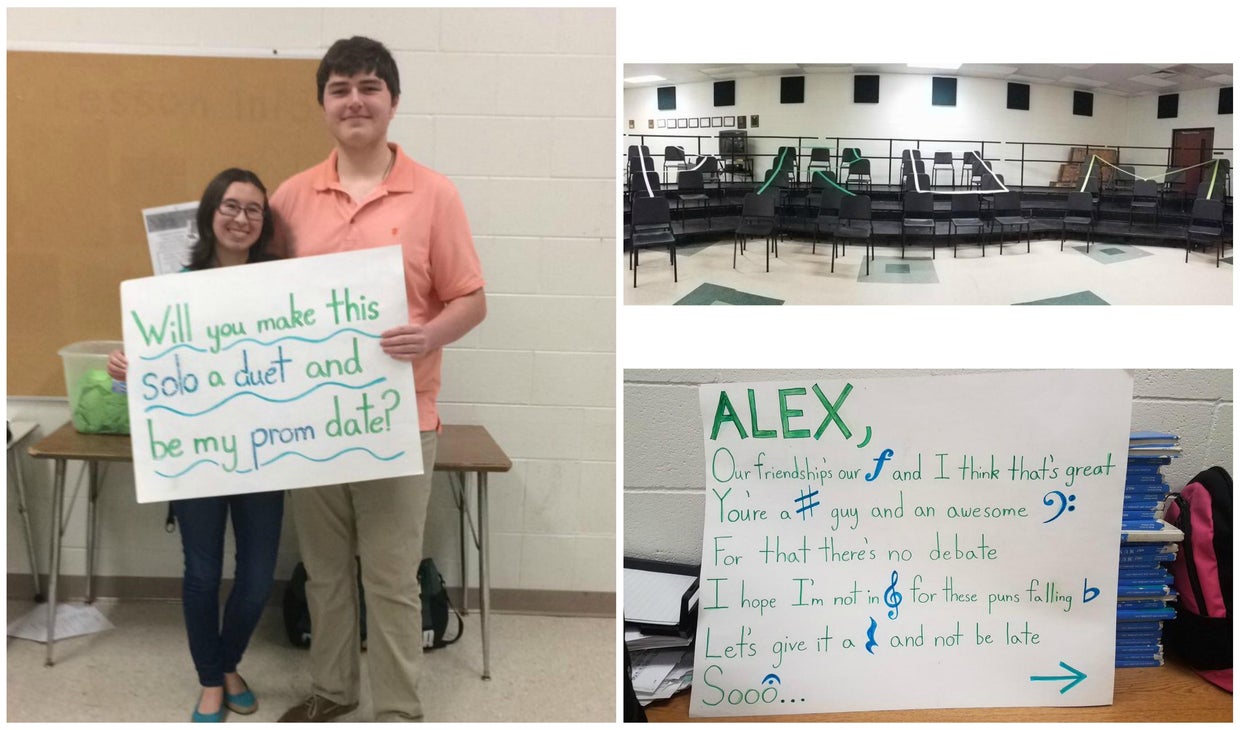 Will you make this
solo a duet and
be my prom date?
ALEX,
Our friendship's our f and I think that's great
You're a # guy and an awesome 𝄢
For that there's no debate
I hope I'm not in 𝄞 for these puns falling ♭
Let's give it a 𝄽 and not be late
Sooo𝄐...
→